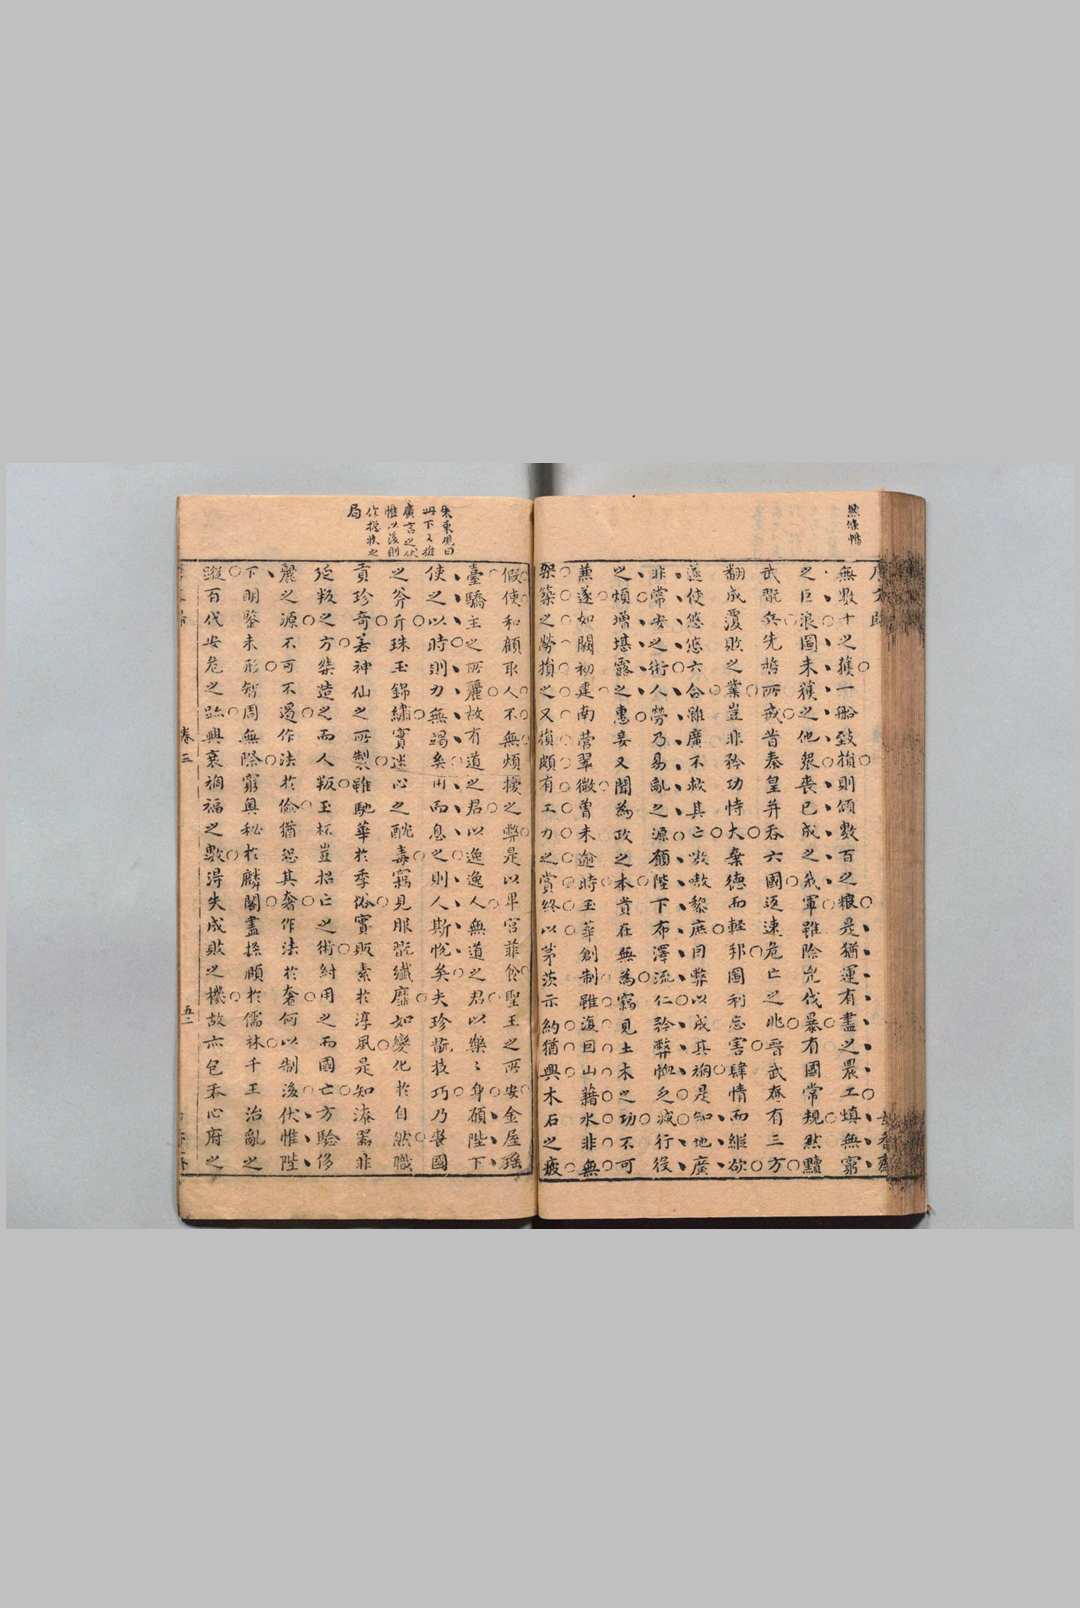 無數十之獲一船致損則傾數百之粮是猶運有盡之農工填無窮
之巨浪圖未獲之他衆喪已成之我軍雖除兇伐暴有國常規然黷
武翫兵先哲所戒昔秦皇并吞六國返速危亡之兆晉武奄有三方
翻成覆敗之業豈非矜功恃大棄德而輕邦圖利忘害肆情而縱欲
遂使悠悠六合雖廣不救其亡嗷嗷黎庶因弊以成其禍是知地廣
非常安之術人勞乃易亂之源願陛下布澤流仁矜弊恤乏減行役
之煩增堪露之惠妾又聞為政之本貴在無為竊見土木之功不可
兼遂如闕初建南營翠微曾未逾時玉華創制雖復因山藉水非無
架築之勞損之又損頗有工力之費終以茅茨示約猶興木石之疲
朱東觀曰
此下又推
廣言之伏
惟以後則
作總收之
局
假使和顧取人不無煩擾之弊是以卑宮菲食聖王之所安金屋瑤
臺驕主之所麗故有道之君以逸逸人無道之君以樂〻身願陛下
使之以時則力無竭矣用而息之則人斯悅矣夫珍翫技巧乃喪國
之斧斤珠玉錦繡實迷心之酖毒竊見服翫纖靡如變化於自然職
貢珍奇若神仙之所製雖馳華於季俗實敗素於淳風是知漆器非
延叛之方桀造之而人叛玉杯豈招亡之術紂用之而國亡方驗侈
麗之源不可不遏作法於儉猶恐其奢作法於奢何以制後伏惟陛
下明鑒未形智周無際窮奧秘於麟閣盡探賾於儒林千王治亂之
蹤百代安危之跡興衰禍福之數得失成敗之機故亦包吞心府之
卷三
五二